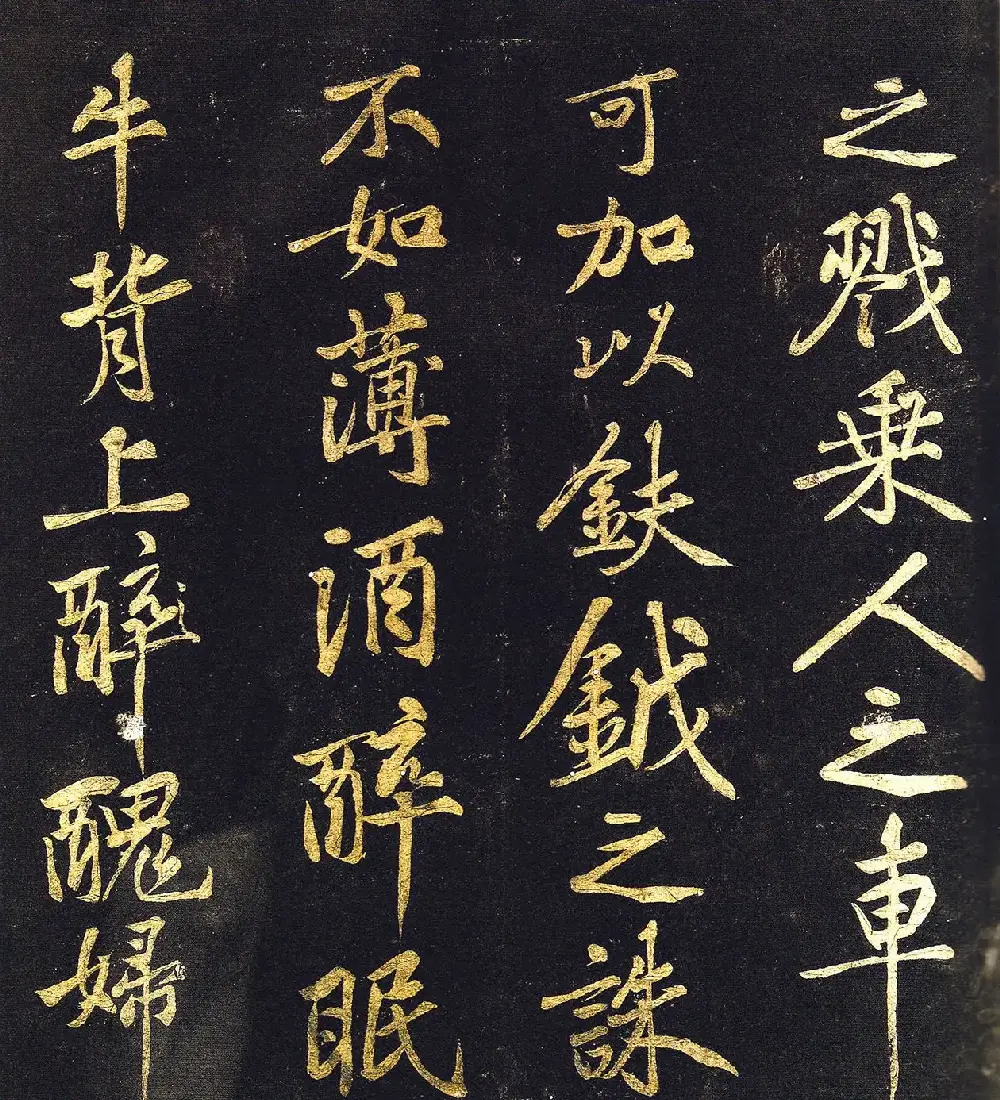 之戮乘人之車
可加以鈇鉞之誅
不如薄酒醉眠
牛背上醉醜婦